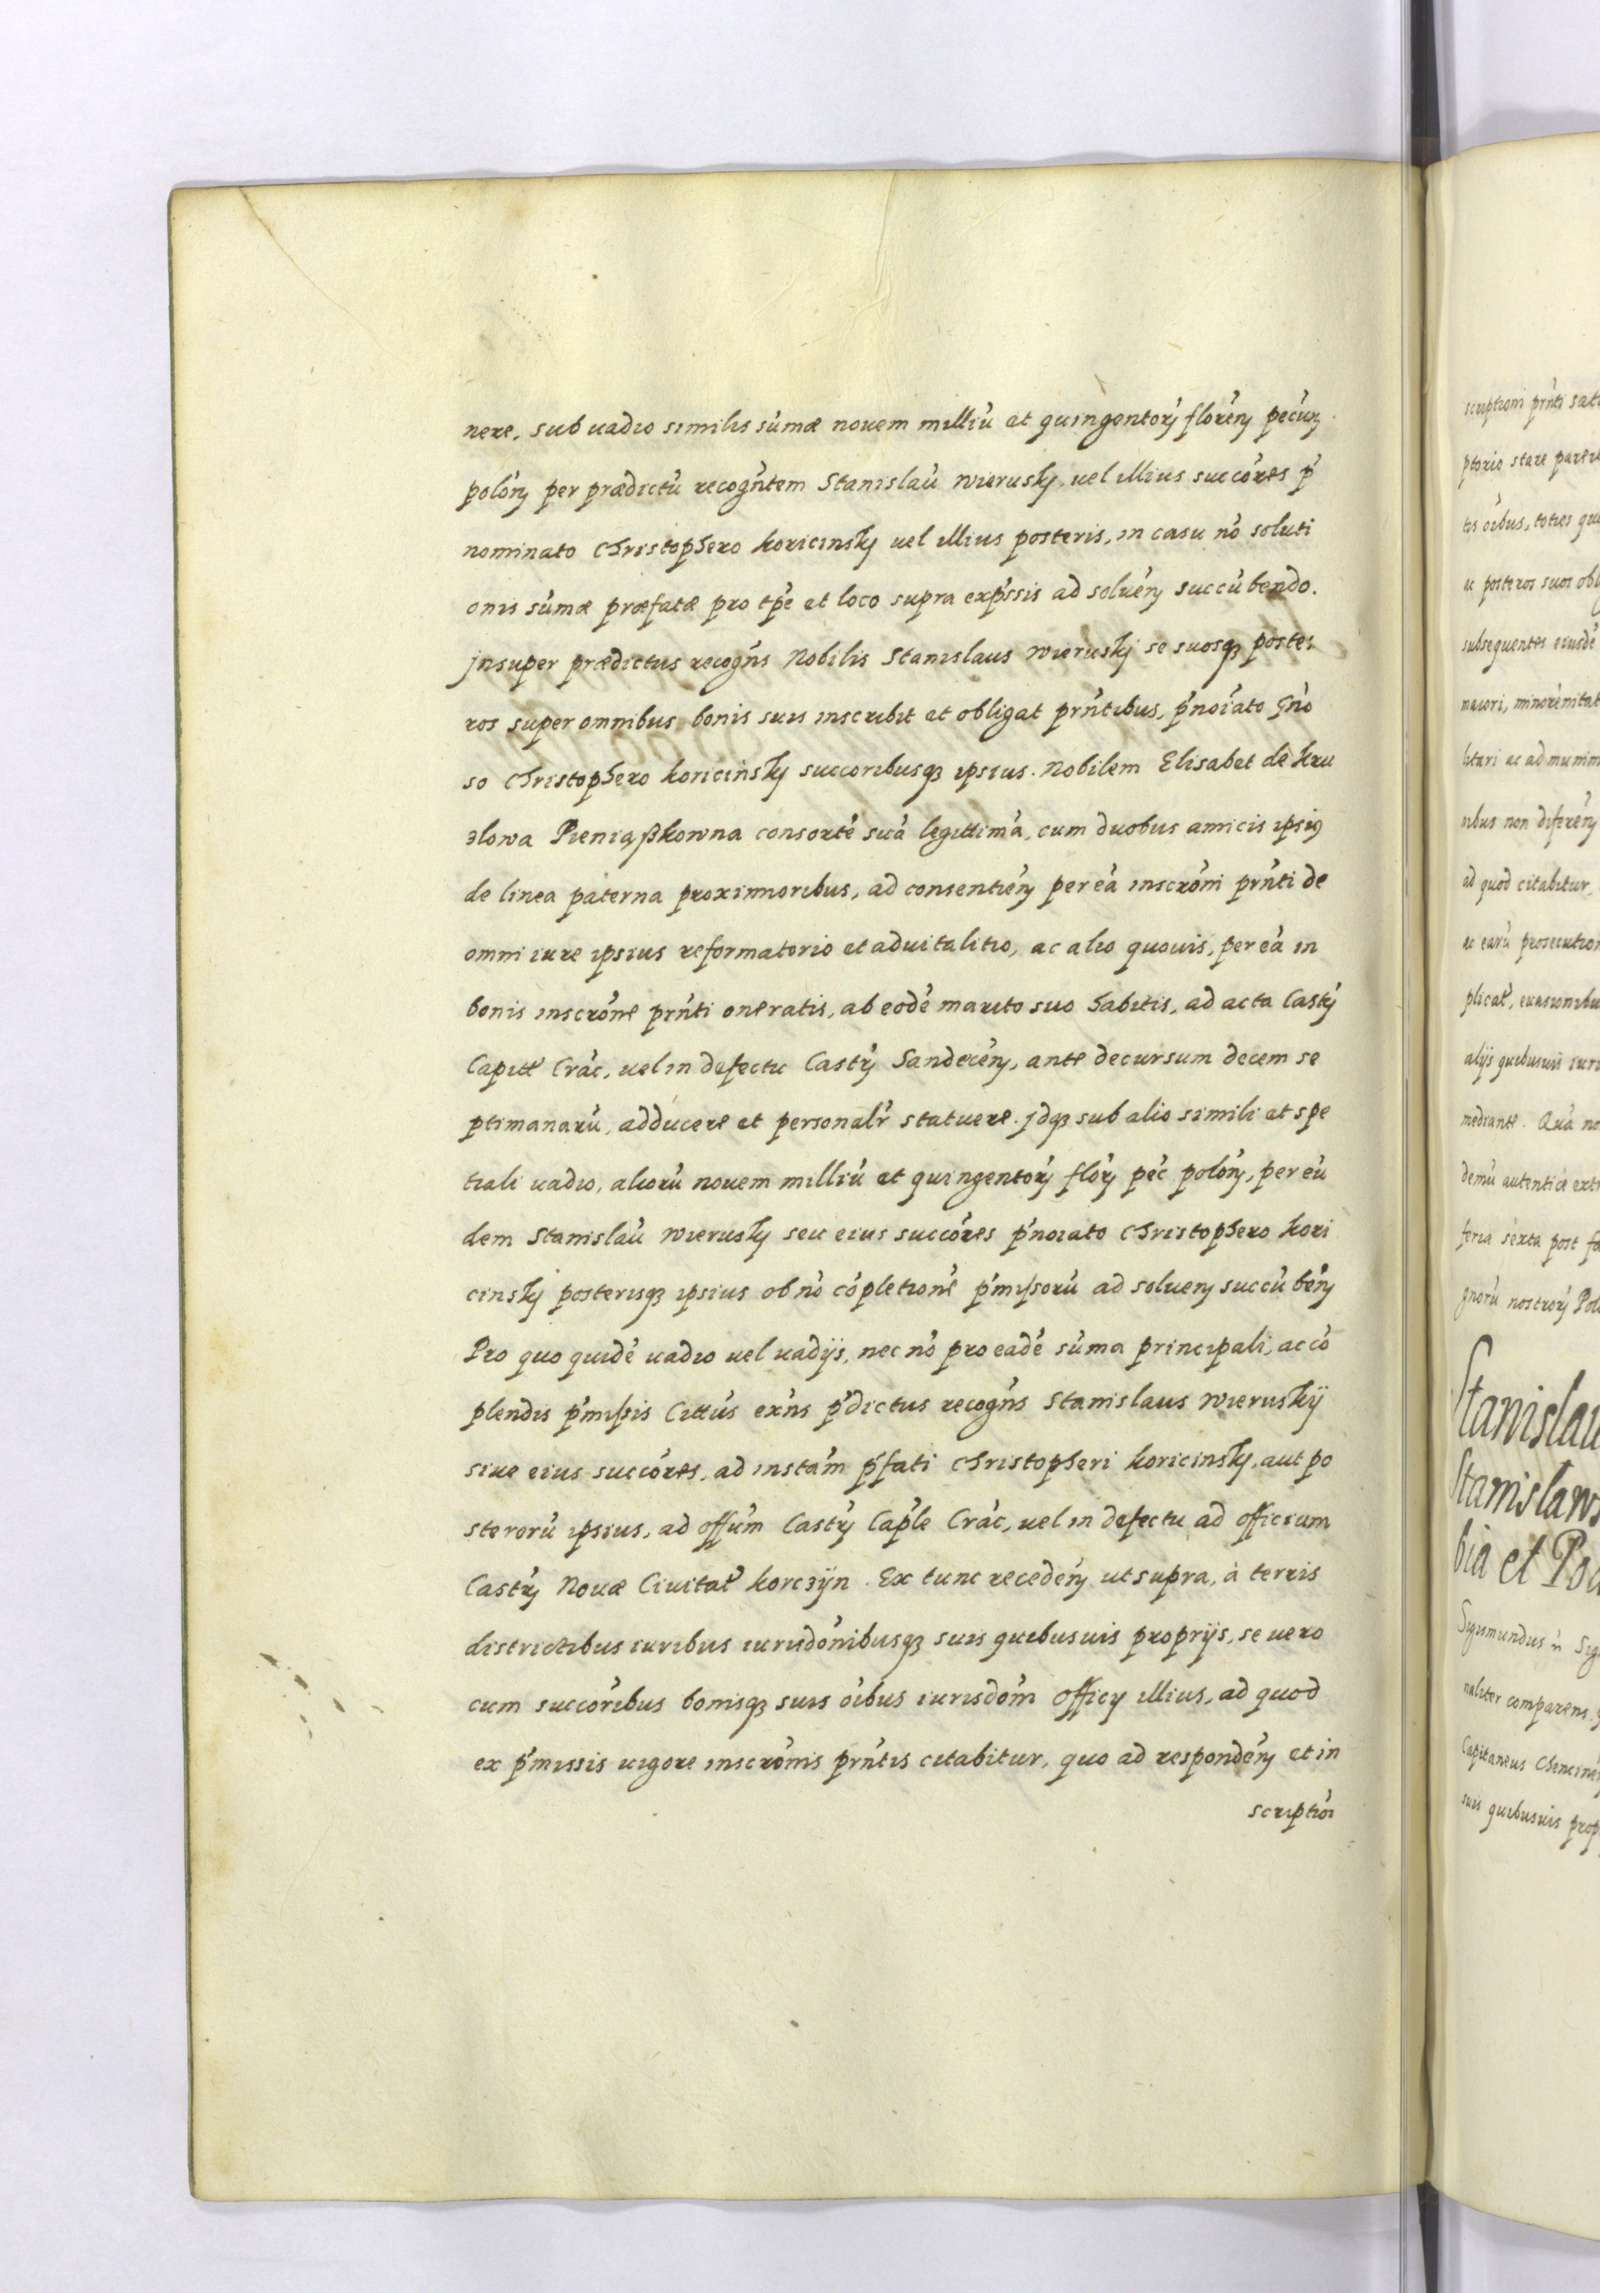 nere, sub uadio similis sum̃æ nouem milliũ et quingentorꝫ florẽnꝫ pecũnꝫ
polõnꝫ per prædictũ recogñtem Stanislaũ Wierusky, uel illius succõres p̃
nominato Christophero Koricinsky uel illius posteris, in casu nõ soluti
onis sũmæ præfatæ pro tp̃e et loco supra exp̃ssis ad soluẽnꝫ succũbendo.
jnsuper prædictus recogñs Nobilis Stanislaus Wierusky se suosqꝫ poste:
ros super omnibus bonis suis inscribit et obligat prñtibus, p̃noĩato Gñõ
so Christophero Koricinsky succoribusqꝫ ipsius. Nobilem Elisabet de Kru
zlowa Pieniąßkowna consortẽ suã legittimã, cum duobus amicis ipsius
de linea paterna proximioribus, ad consentiẽnꝫ per eã inscrõni prñti de
omni iure ipsius reformatorio et aduitalitio, ac alio quouis, per eã in
bonis inscrõne prñti oneratis, ab eodẽ marito suo habitis, ad acta Castrꝫ
Capitł Crãc, uel in defectu Castrꝫ Sandecẽnꝫ, ante decursum decem se
ptimanarũ, adducere et personalr̃ statuere. jdqꝫ sub alio simili et spe
tiali uadio, aliorũ nouem milliũ et quingentorꝫ florꝫ pẽc polõnꝫ, per eũ
dem Stanislaũ Wierusky seu eius succõres p̃noiato Christophero Kori
cinsky posterisqꝫ ipsius ob nõ cõpletionẽ p̃mißorũ ad soluenꝫ succũbẽnꝫ
Pro quo quidẽ uadio uel uadijs, nec nõ pro eadẽ sũma principali, ac cõ
plendis p̃mißis Cittũs exñs p̃dictus recogñs Stanislaus Wieruskÿ
siue eius succõres, ad instãm p̃fati Christopheri Koricinsky, aut po
sterorũ ipsius, ad offũm Castrꝫ Cap̃le Crãc, uel in defectu ad officium
Castrꝫ Nouæ Ciuitat̃ Korczÿn. Ex tunc recedẽnꝫ ut supra, à terris
districtibus iuribus iurisdõnibusqꝫ suis quibusuis proprijs, se uero
cum succõribus bonisqꝫ suis oĩbus iurisdõni officij illius, ad quod
ex p̃missis uigore inscrõnis prñtis citabitur, quo ad respondẽnꝫ et in
scriptiõi
scriptioni prñti sati
ptorio stare parere
tos oĩbus, toties qu
ac posteros suos obl
subsequentes eiusdẽ
maiori, minorẽ mitat
ad quod citabitur,
ac earũ prosecution
plicat̃, euasionibu
alijs quibusuis iuri
mediante. Quã no
demũ autenticè extr
feria sexta post fe
gnorũ nostrorꝫ Pol
Stanislau
Stanislaus
bia et Pod
Sigismundus
naliter comparens
Capitaneus Chencinẽ
suis quibusuis prop